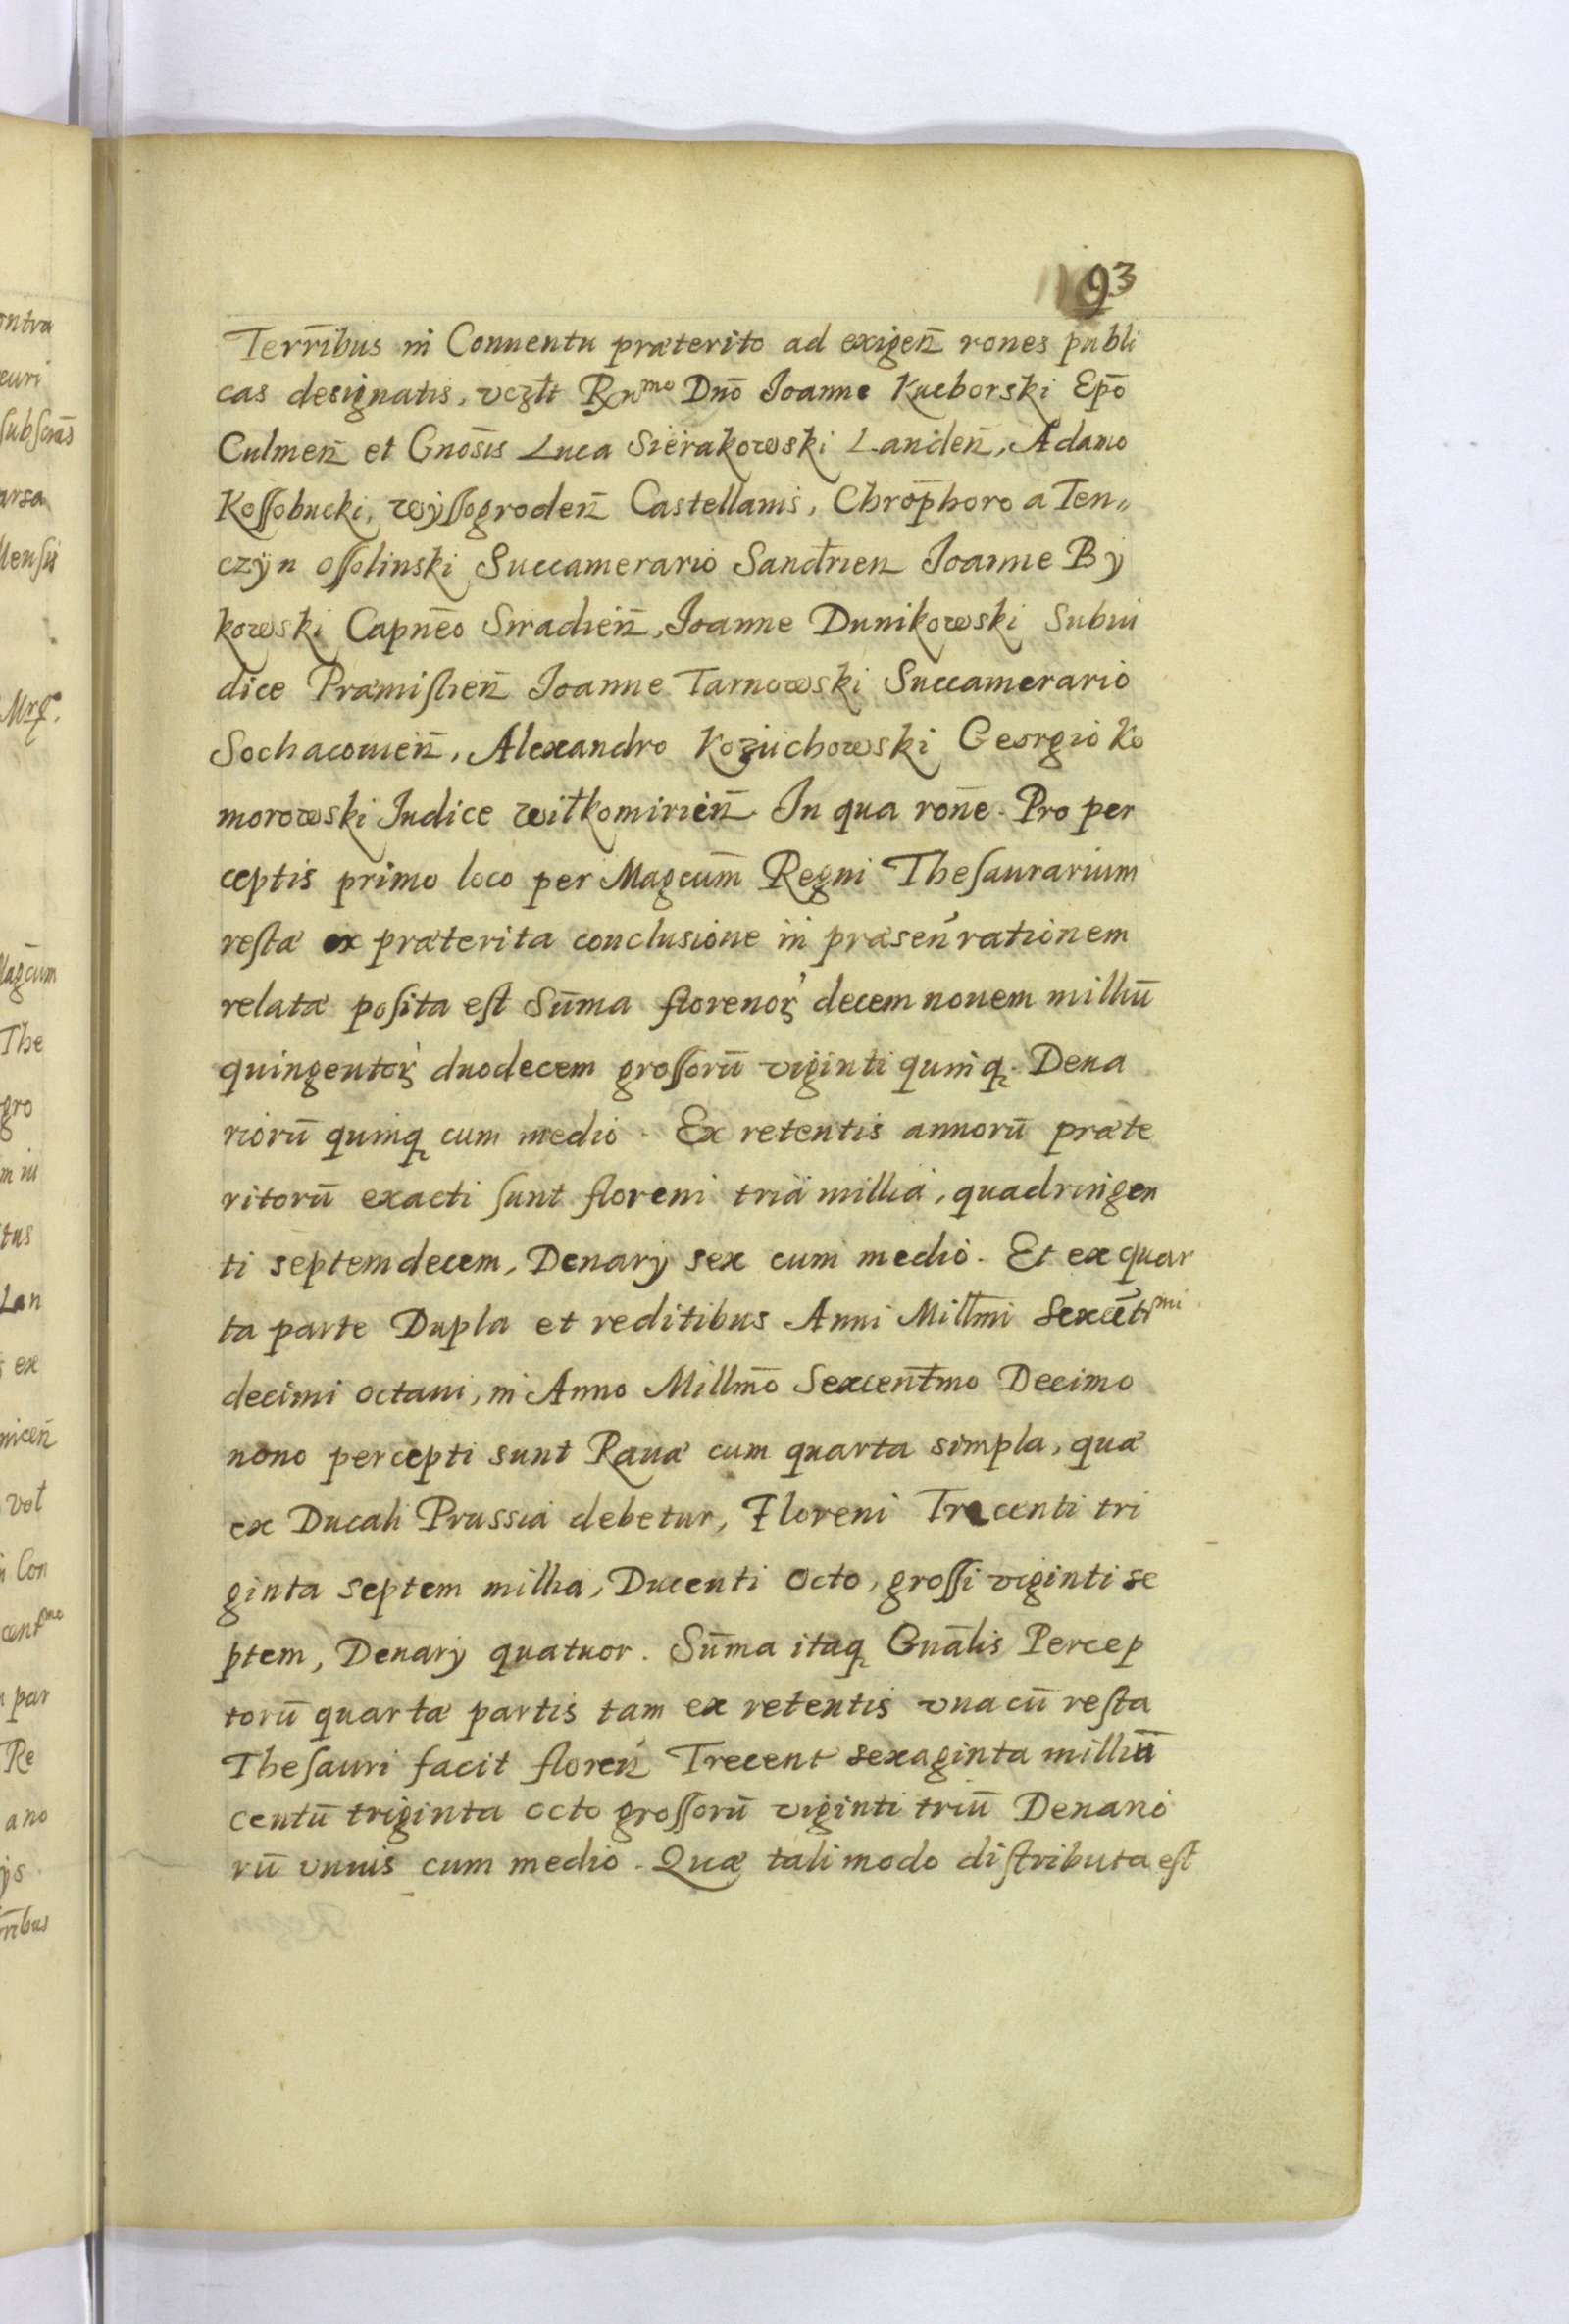 93
Terr̄ibus in Conuentu præterito ad exigen̄ rones publi
cas designatis, vczlt Rx̄n^mo Dnō Ioanne Kuczborski Epō
Culmen̄ et Gnōsis Luca Sierakowski Landen̄, Adamo
Koſſobucki, wyſſogroden̄ Castellanis, Chrōphoro a Ten„
czÿn oſſolinski Succamerario Sandr̄ien Ioanne By
kowski Capnēo Siradien̄, Ioanne Dunikowski Subiu
dice Præmiſlien̄ Ioanne Tarnowski Succamerario
Sochacouien̄, Alexandro Koziuchowski Georgio Ko
morowski Iudice witkomirien̄. In qua ron̄e. Pro per
ceptis primo loco per Magcum̄ Regni Theſaurarium
reſtæ ex præterita conclusione in præsen̄ rationem
relatæ poſita eſt Sūma florenoꝝ decem nouem milliū
quingentoꝝ duodecem groſſorū viginti quinqꝫ. Dena
riorū quinqꝫ cum medio. Ex retentis annorū præte
ritorū exacti ſunt floreni tria millia, quadringen
ti septemdecem, Denarÿ sex cum medio. Et ex quar
ta parte Dupla et reditibus Anni Millm̄i Sexcēt^mi
decimi octaui, in Anno Millmō Sexcent̄mo Decimo
nono percepti sunt Rauæ cum quarta simpla, quæ
ex Ducali Prussia debetur, Floreni Trecenti tri
ginta septem millia, Ducenti octo, groſſi viginti se
ptem, Denarÿ quatuor. Sūma itaqꝫ Gnālis Percep
torū quartæ partis tam ex retentis vnacū reſta
Theſauri facit floren̄ Trecent sexaginta milliū
centū triginta octo groſſorū viginti triū Denario
rū vnius cum medio. Quæ tali modo diſtributa eſt